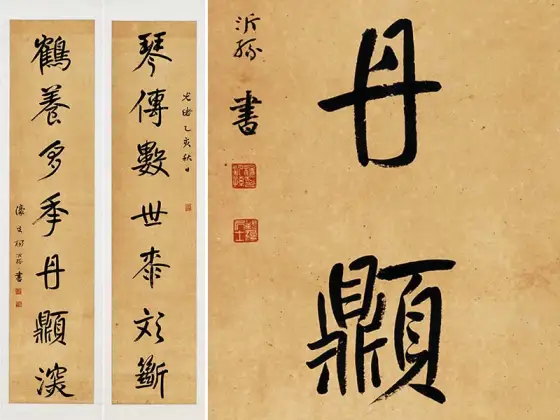 琴傳數世桼彣斷
光緒乙亥秋日
鶴養多年丹𩕢深
濠叟楊沂孫書
丹𩕢
沂孫書